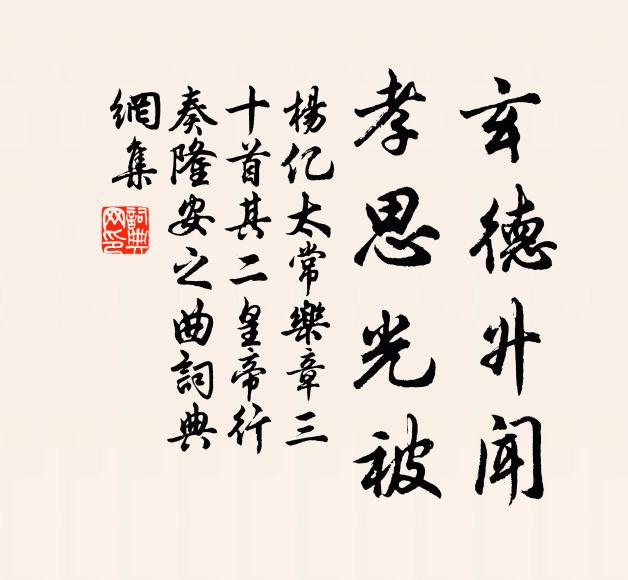 玄德升聞
孝思光被
楊亿太常樂章三
十首其二皇帝行
奏隆安之曲詞典
網集
詞典
网印